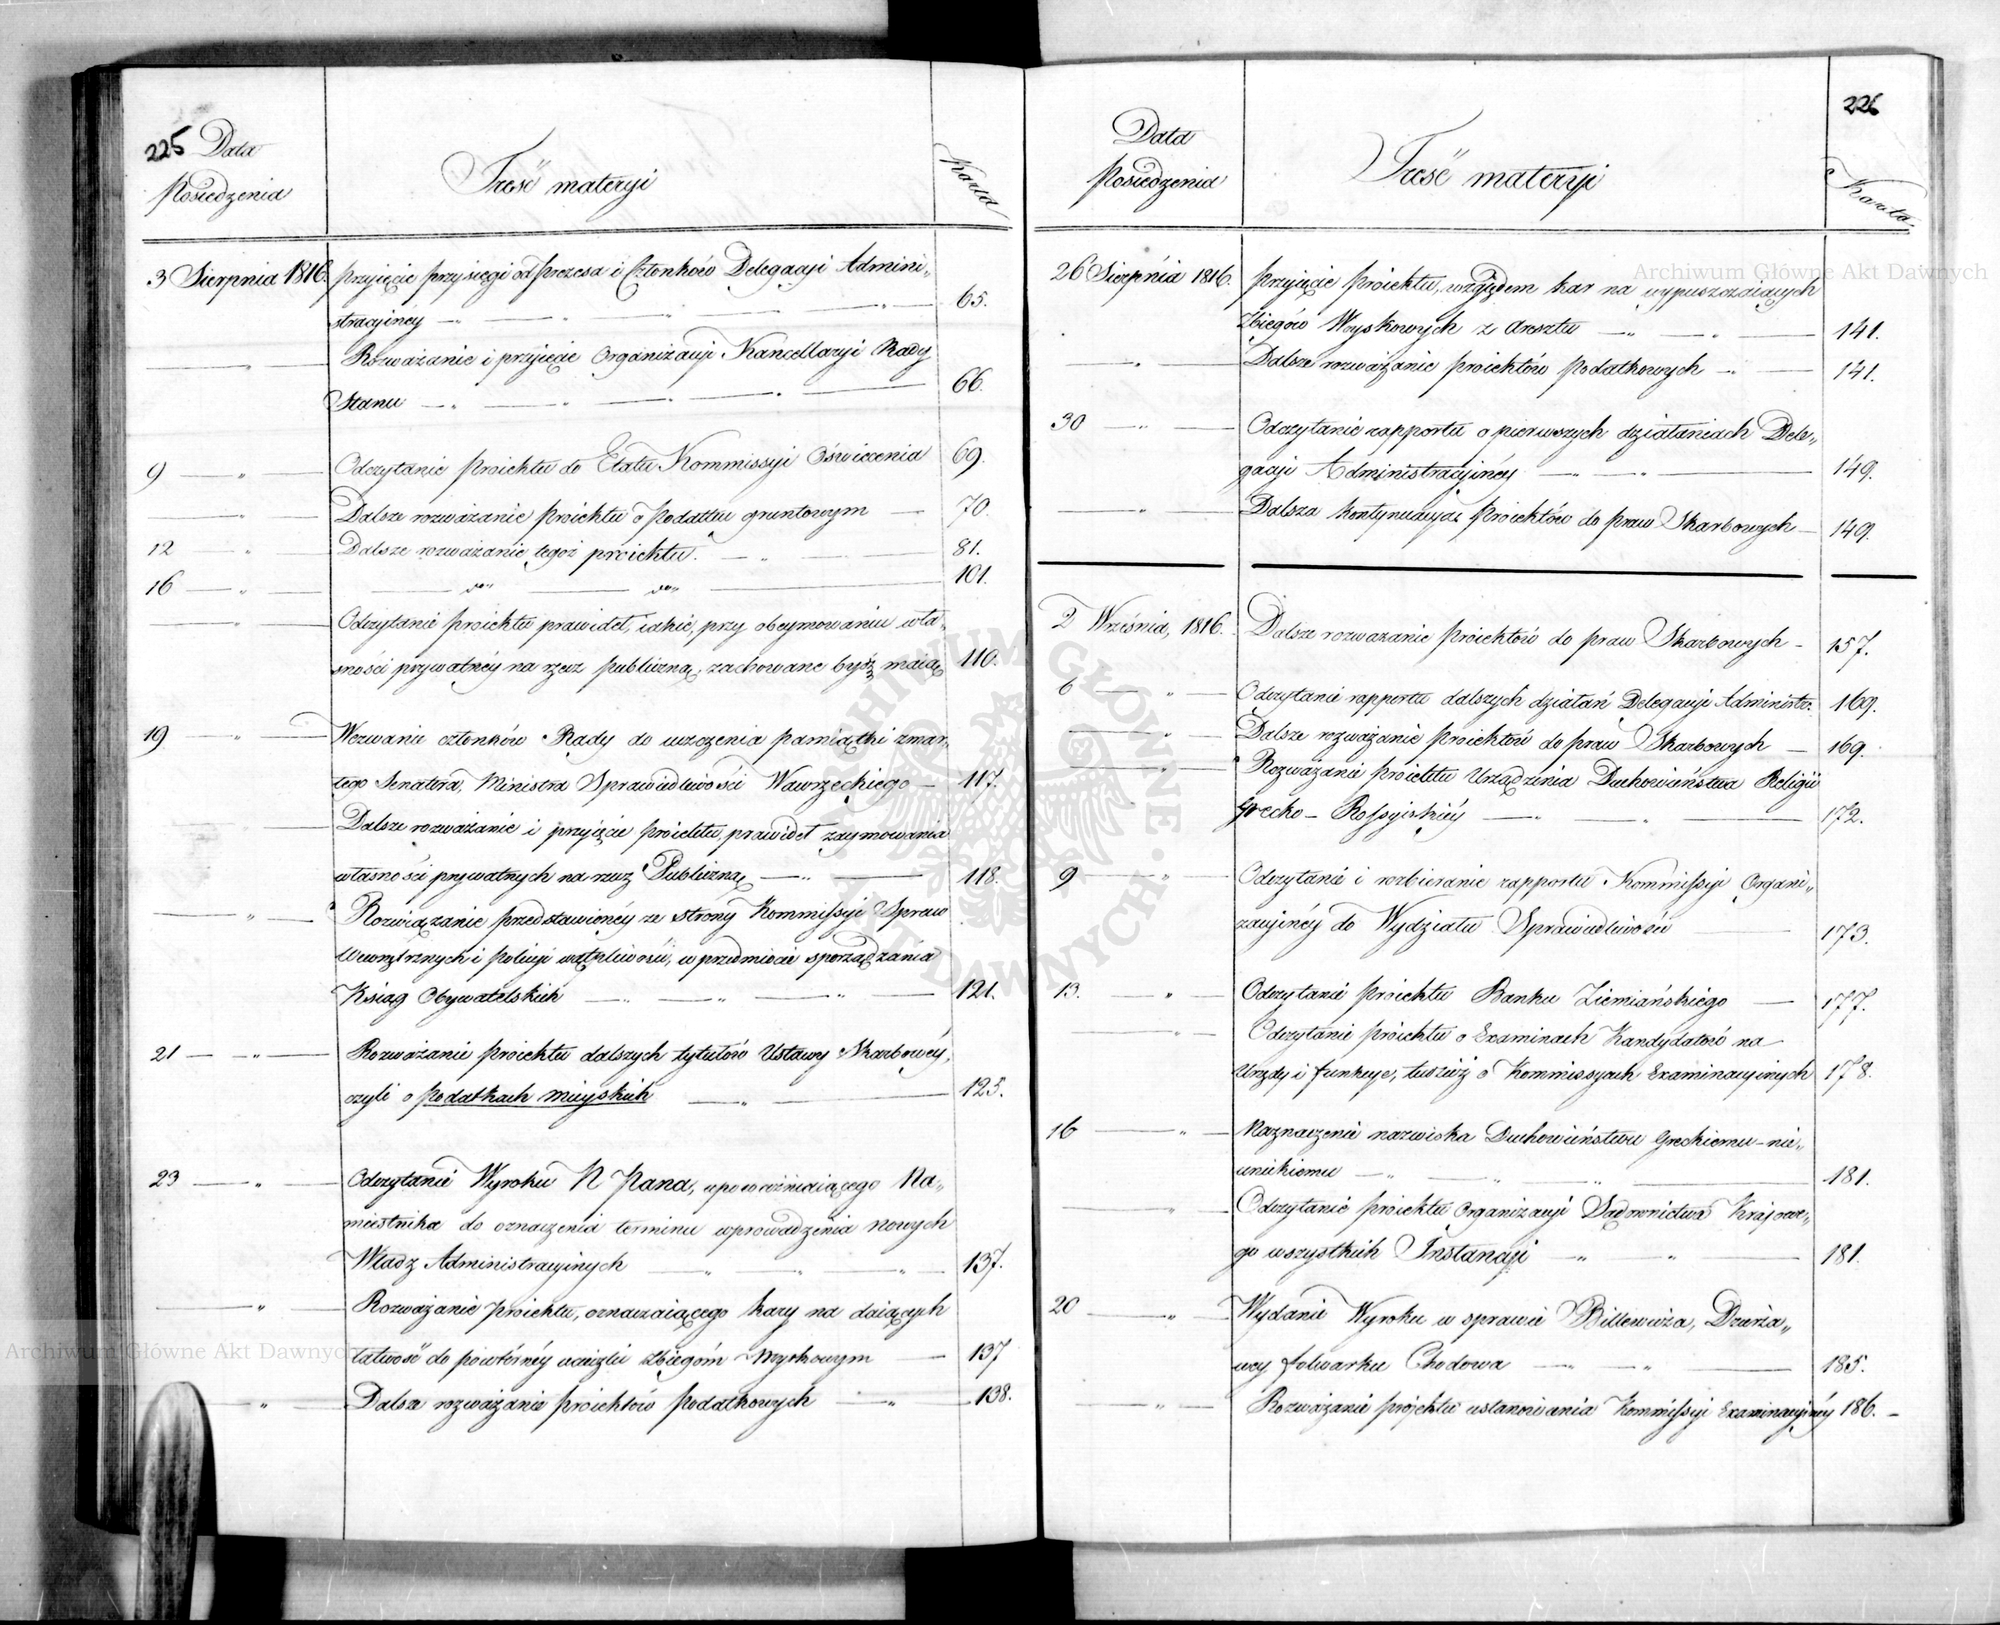 225 Data
Posiedzenia
Treść materyi
Karta
3 Sierpnia 1816. Przyięcie przysięgi od Prezesa i Członków Delegacyi Admini„
stracyiney — „ — „ — „ — 65.
— „ — Rozważanie i przyięcie Organizacyi Kancellaryi Rady
Stanu — „ — „ — „ — „ — 66.
9 — „ — Odczytanie Proiektu do Etatu Kommissyi Oświecenia 69.
— „ — Dalsze rozważanie Proiektu o Podatku gruntowym — 70.
12 „ — Dalsze rozważanie tegoż proiektu. — „ — 81.
16 — „ — — do„ — do„ — 101.
— „ — Odczytanie Proiektu prawideł, iakie, przy obeymowaniu wła„
sności prywatnéy na rzecz publiczną, zachowane bydź maią 110.
19 — „ — Wezwanie członków Rady do uczczenia pamiątki zmar„
łego Senatora, Ministra Sprawiedliwości Wawrzeckiego — 117.
— „ — Dalsze rozważanie i przyięcie Proiektu prawideł zaymowania
własności prywatnych na rzecz Publiczną — „ — 118.
— „ — Rozwiązanie przedstawionéy ze strony Kommissyi Spraw
Wewnętrznych i Policyi wątpliwości, w przedmiocie sporządzania
Ksiąg Obywatelskich — „ — „ — „ — 121.
21 — „ — Rozważanie proiektu dalszych tytułów Ustawy Skarbowéy,
czyli o podatkach mieyskich — „ — 125.
23 — „ — Odczytanie Wyroku N Pana, upoważniaiącego Na„
miestnika do oznaczenia terminu wprowadzenia nowych
Władz Administracyinych — „ — „ — „ — 137.
— „ — Rozważanie Proiektu, oznaczaiącego kary na daiących
łatwość do powtórnéy ucieczki zbiegóm Woyskowym — 137
— „ — Dalsze rozważanie proiektów Podatkowych — „ — 138.
226
Data
Posiedzenia
Treść materyi
Karta
26 Sierpnia 1816. Przyięcie Proiektu, względem kar na wypuszczaiących
Zbiegów Woyskowych z Aresztu — „ — „ — 141.
— „ — Dalsze rozważanie proiektów Podatkowych — „ — 141.
30 — „ — Odczytanie rapportu o pierwszych działaniach Dele„
gacyi Administracyinéy — „ — „ — 149.
— „ — Dalsza kontynuacya Proiektów do praw Skarbowych — 149.
2 Września, 1816. Dalsze rozważanie Proiektów do praw Skarbowych — 157.
6 — „ — Odczytanie rapportu dalszych działań Delegacyi Administr. 169.
— „ — Dalsze rozważanie Proiektów do praw Skarbowych — 169.
— „ — Rozważanie proiektu Urządzenia Duchowieństwa Religii
Grecko – Rossyiskiéy — „ — „ — 172.
9 — „ — Odczytanie i rozbieranie rapportu Kommissyi Organi„
zacyinéy do Wydziału Sprawiedliwości — 173.
13. — „ — Odczytanie proiektu Banku Ziemiańskiego — 177.
— „ — Odczytanie proiektu o Examinach Kandydatów na
Urzędy i funkcye, tudzież o Kommissyach Examinacyinych 178.
16 — „ — Naznaczenie nazwiska Duchowieństwu Greckiemu – nie„
unickiemu — „ — „ — „ — 181.
— „ — Odczytanie proiektu Organizacyi Sądownictwa Krajowe„
go wszystkich Instancyi — „ — „ — 181.
20 — „ — Wydanie Wyroku w sprawie Billewicza, Dzierża„
wcy folwarku Chodowa — „ — „ — 185.
— „ — Rozważanie proiektu ustanowienia Kommissyi Examinacyinéy 186. –
Archiwum Główne Akt Dawnych
Archiwum Główne Akt Dawnych
ARCHIWUM GŁÓWNE · AKT DAWNYCH ·